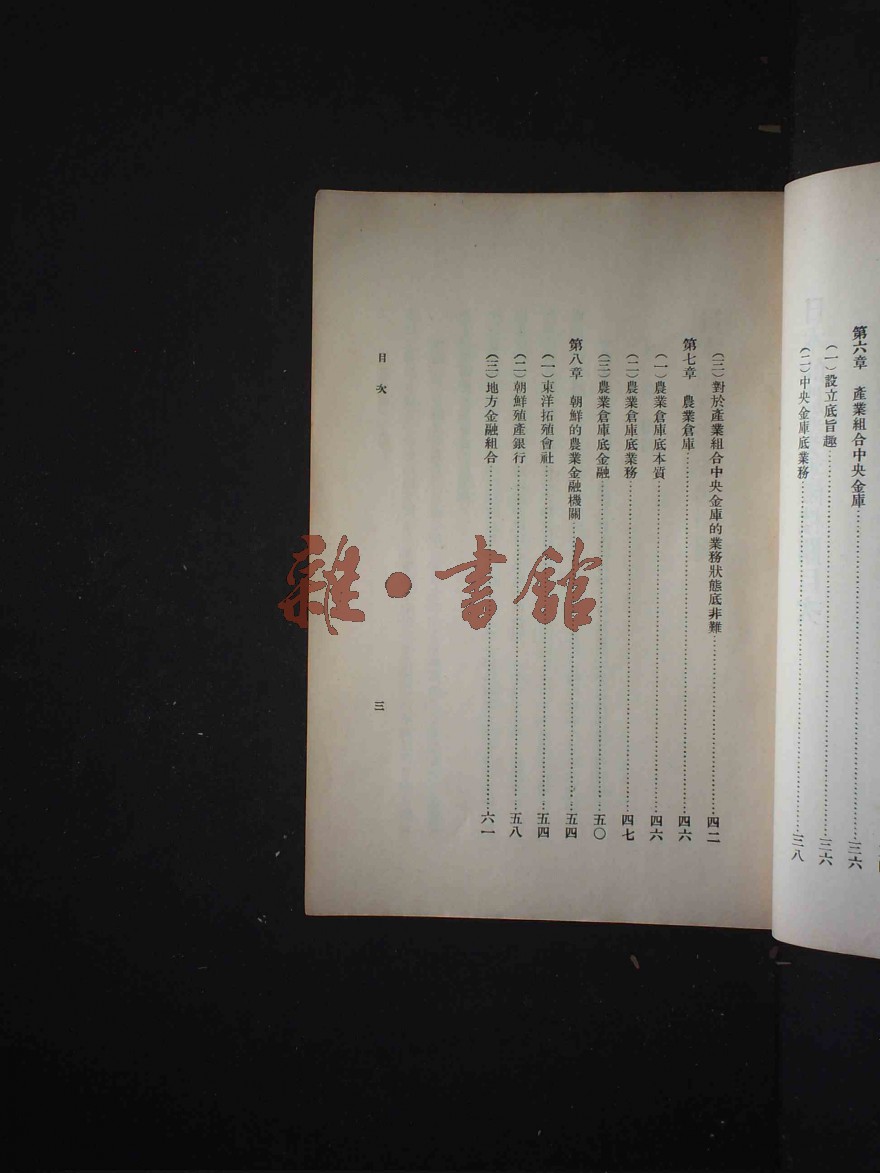 第六章　產業組合中央金庫…………三六
(一)設立底旨趣…………三六
(二)中央金庫底業務…………三八
(三)對於產業組合中央金庫的業務狀態底非難…………四二
第七章　農業倉庫…………四六
(一)農業倉庫底本質…………四六
(二)農業倉庫底業務…………四七
(三)農業倉庫底金融…………五〇
第八章　朝鮮的農業金融機關…………五四
(一)東洋拓殖會社…………五四
(二)朝鮮殖產銀行…………五八
(三)地方金融組合…………六一
目次　三
雜·書館